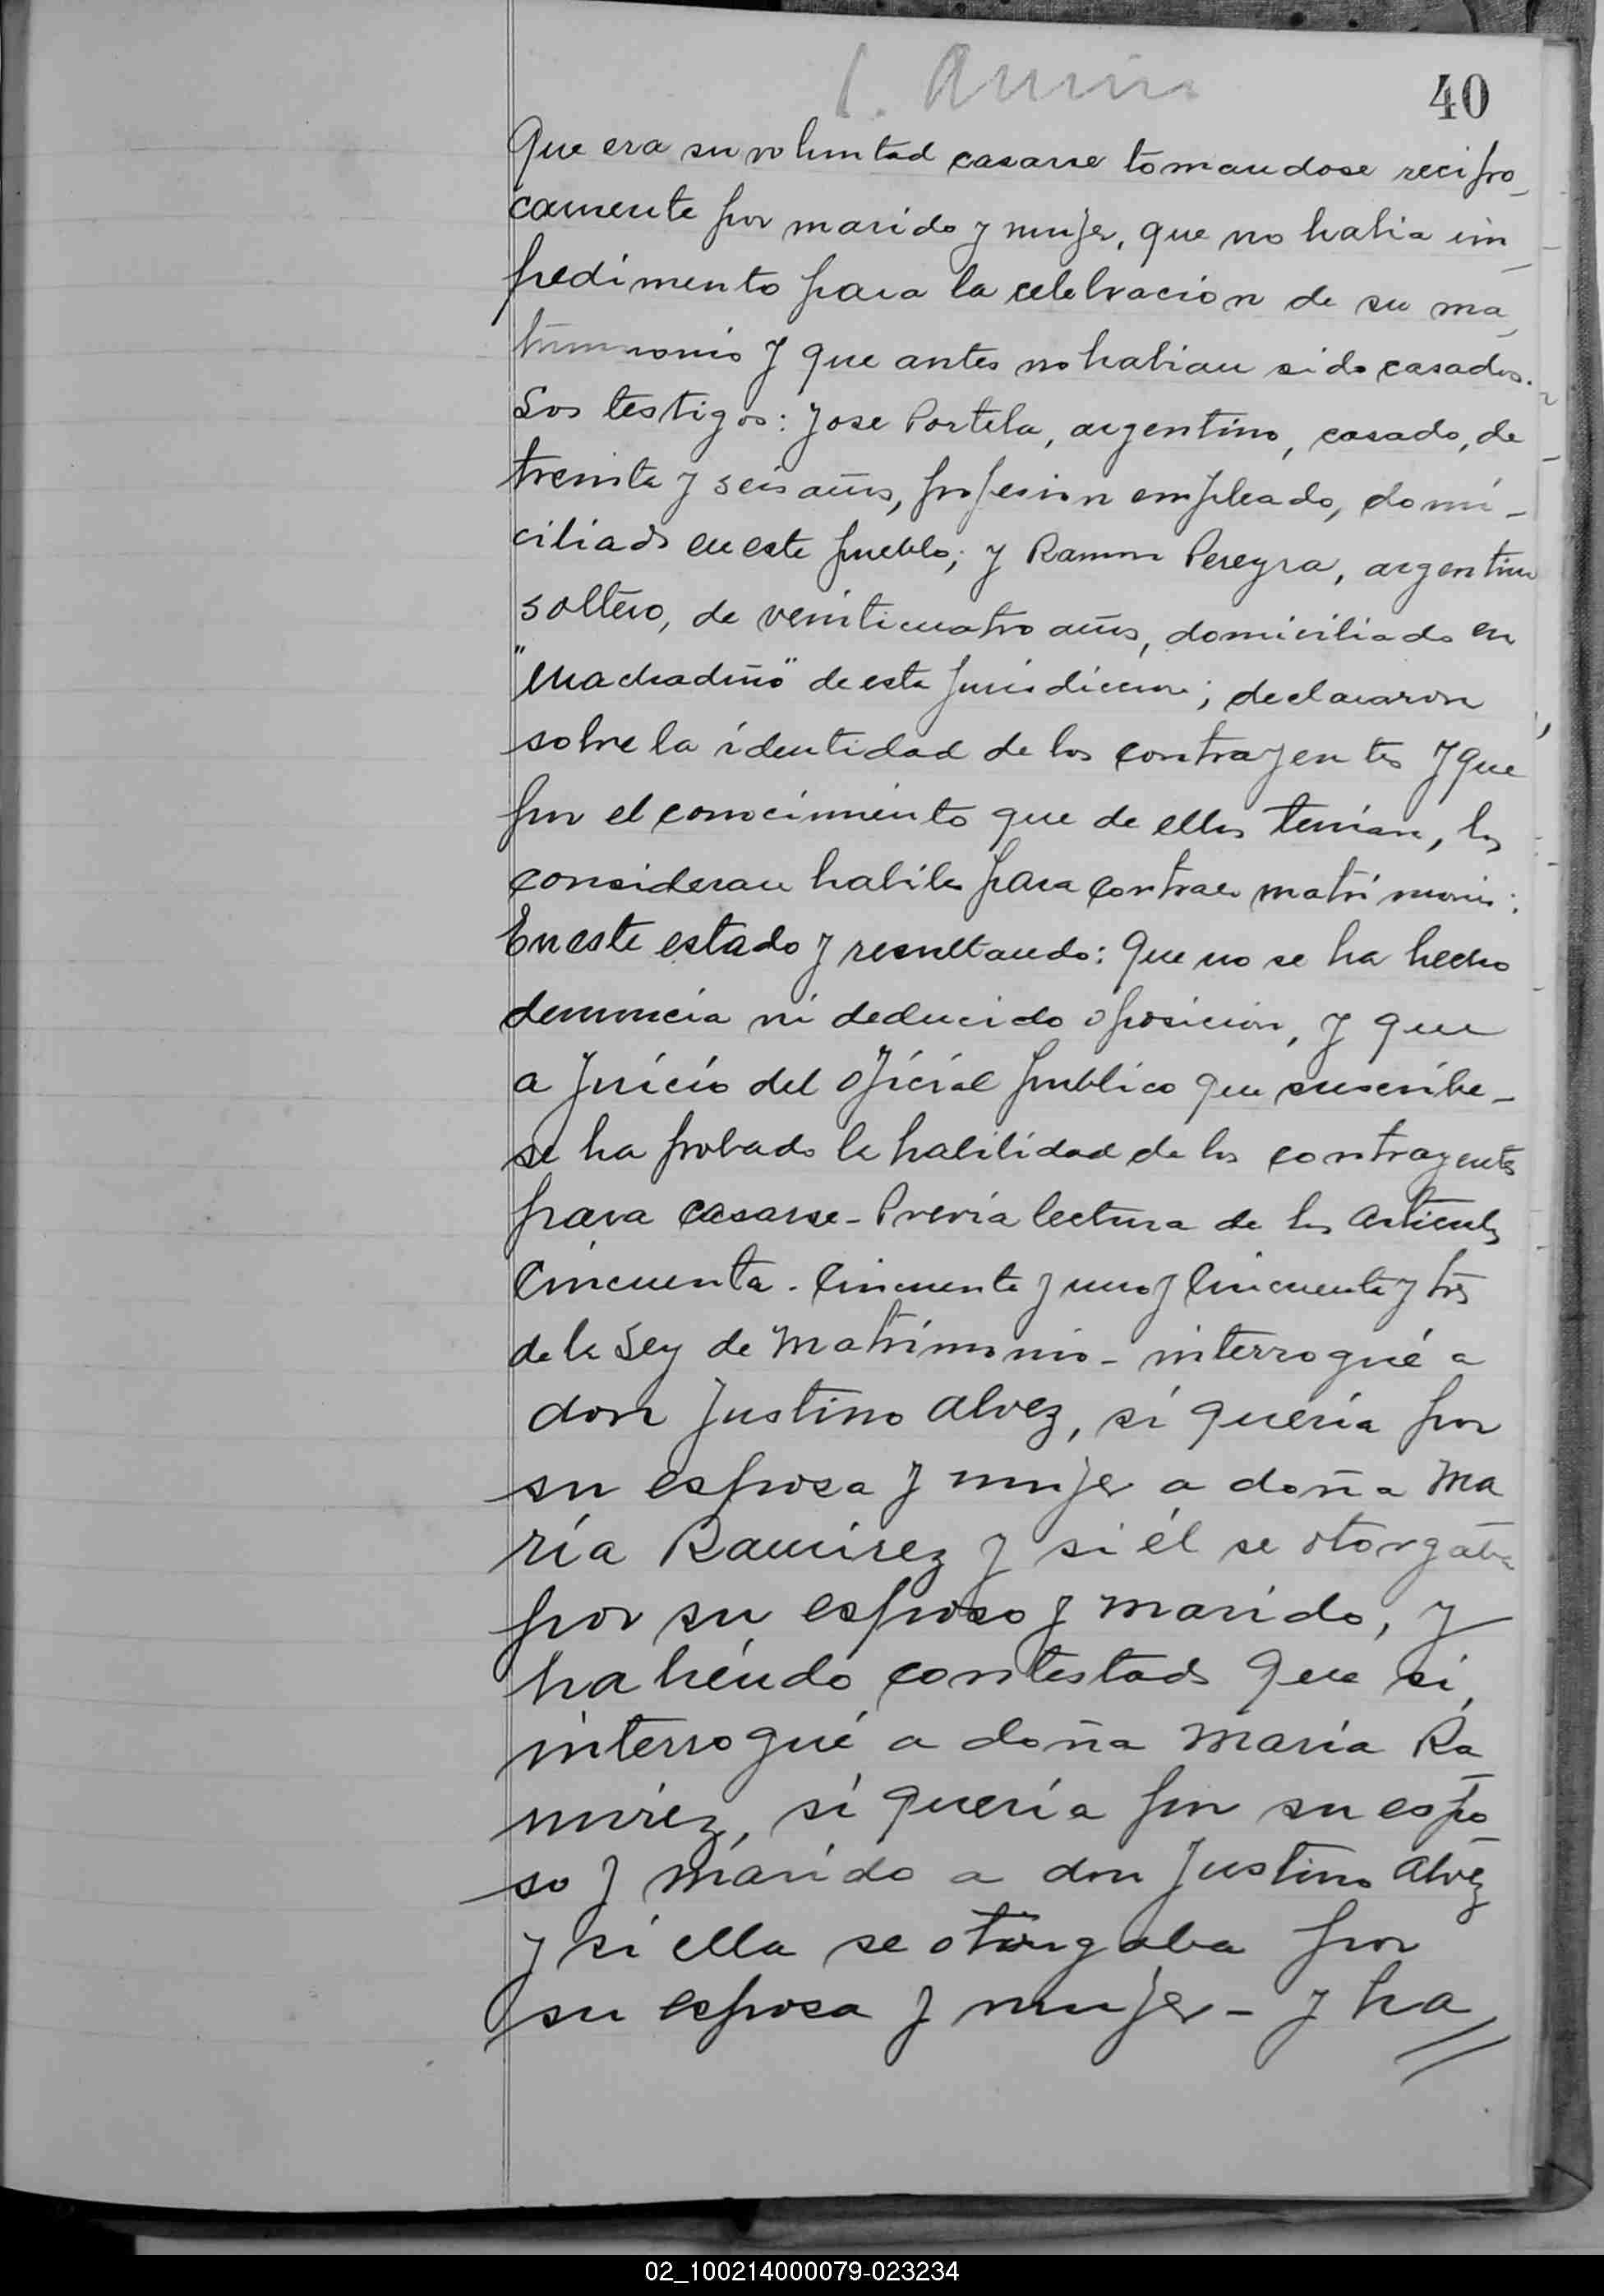 40
Que era su voluntad casarse tomandose recipro_
camente por marido y mujer, que no habia im_
pedimento para la celebracion de su ma_
trimonio y que antes no habian sido casados.
Los testigos: Jose Portela, argentino, casado, de
treinta y seis años, profesion empleado, domi-
ciliado en este pueblo; y Ramon Pereyra, argentino
soltero, de veinticuatro años, domiciliado en
"Machadiño" de esta jurisdiccion; declararon
sobre la identidad de los contrayentes y que
por el conocimiento que de ellos tenian, los
consideran habiles para contraer matrimonio:
En este estado y resultando: Que no se ha hecho
denuncia ni deducido oposicion, y que
a juicio del oficial publico que suscribe_
se ha probado la habilidad de los contrayentes
para casarse - Previa lectura de los articulos
Cincuenta - Cincuenta y uno y Cincuenta y tres
de la Ley de Matrimonio - interrogué a
don Justino Alvez, si quería por
su esposa y mujer a doña Ma
ría Ramirez y si él se otorgaba
por su esposo y marido, y
habiendo contestado que si,
interrogué a doña María Ra_
mirez, si quería por su espo_
so y marido a don Justino Alvez
y si ella se otorgaba por
su esposa y mujer - y ha//
02_100214000079-023234